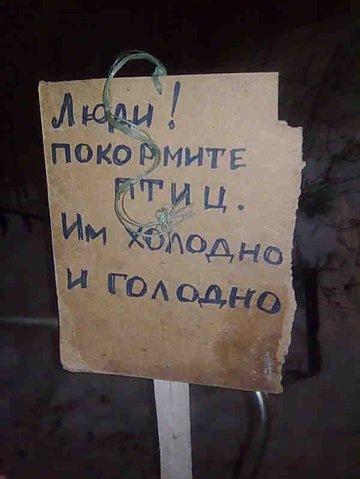 Люди!
покормите
птиц.
Им холодно
и голодно